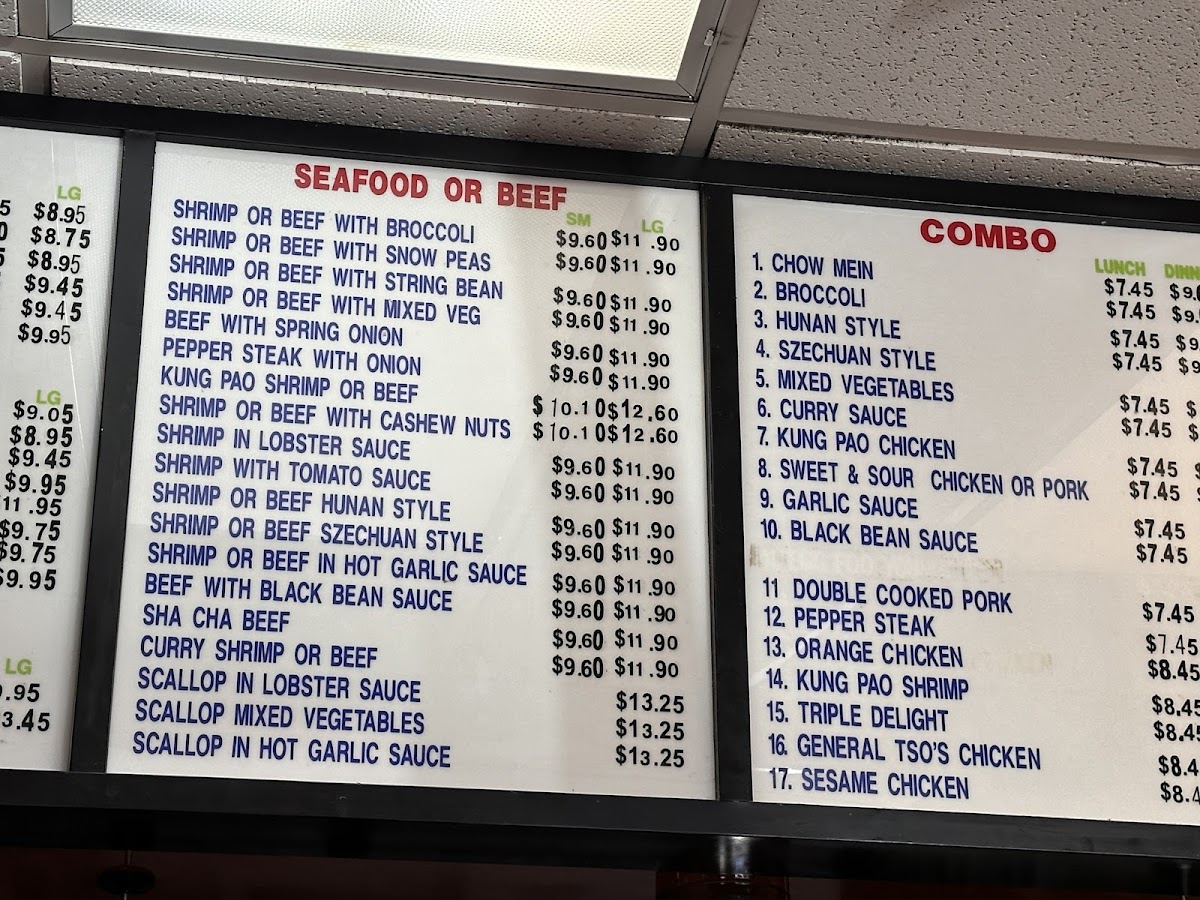 LG
5 $8.95
0 $8.75
5 $8.95
$9.45
$9.45
$9.95
LG
$9.05
$8.95
$9.45
$9.95
11.95
$9.75
$9.75
$9.95
LG
.95
3.45
SEAFOOD OR BEEF
SM LG
SHRIMP OR BEEF WITH BROCCOLI $9.60 $11.90
SHRIMP OR BEEF WITH SNOW PEAS $9.60 $11.90
SHRIMP OR BEEF WITH STRING BEAN $9.60 $11.90
SHRIMP OR BEEF WITH MIXED VEG $9.60 $11.90
BEEF WITH SPRING ONION $9.60 $11.90
PEPPER STEAK WITH ONION $9.60 $11.90
KUNG PAO SHRIMP OR BEEF $10.10 $12.60
SHRIMP OR BEEF WITH CASHEW NUTS $10.10 $12.60
SHRIMP IN LOBSTER SAUCE $9.60 $11.90
SHRIMP WITH TOMATO SAUCE $9.60 $11.90
SHRIMP OR BEEF HUNAN STYLE $9.60 $11.90
SHRIMP OR BEEF SZECHUAN STYLE $9.60 $11.90
SHRIMP OR BEEF IN HOT GARLIC SAUCE $9.60 $11.90
BEEF WITH BLACK BEAN SAUCE $9.60 $11.90
SHA CHA BEEF $9.60 $11.90
CURRY SHRIMP OR BEEF $9.60 $11.90
SCALLOP IN LOBSTER SAUCE $13.25
SCALLOP MIXED VEGETABLES $13.25
SCALLOP IN HOT GARLIC SAUCE $13.25
COMBO
LUNCH DINN
1. CHOW MEIN $7.45 $9.0
2. BROCCOLI $7.45 $9.
3. HUNAN STYLE $7.45 $9
4. SZECHUAN STYLE $7.45 $9
5. MIXED VEGETABLES $7.45 $
6. CURRY SAUCE $7.45 $
7. KUNG PAO CHICKEN $7.45 $
8. SWEET & SOUR CHICKEN OR PORK $7.45 $
9. GARLIC SAUCE $7.45
10. BLACK BEAN SAUCE $7.45
11 DOUBLE COOKED PORK $7.45
12. PEPPER STEAK $7.45
13. ORANGE CHICKEN $8.45
14. KUNG PAO SHRIMP $8.45
15. TRIPLE DELIGHT $8.45
16. GENERAL TSO'S CHICKEN $8.4
17. SESAME CHICKEN $8.4